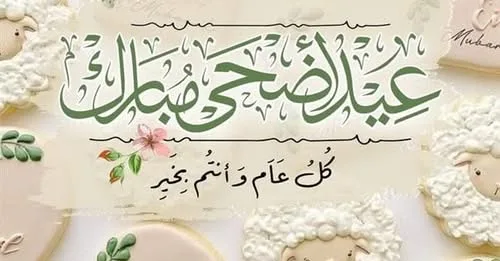 Mubarak
عِيدُ أَضْحَى مُبَارَك
كُلُ عَام وَأنتُم بِخَيرِ